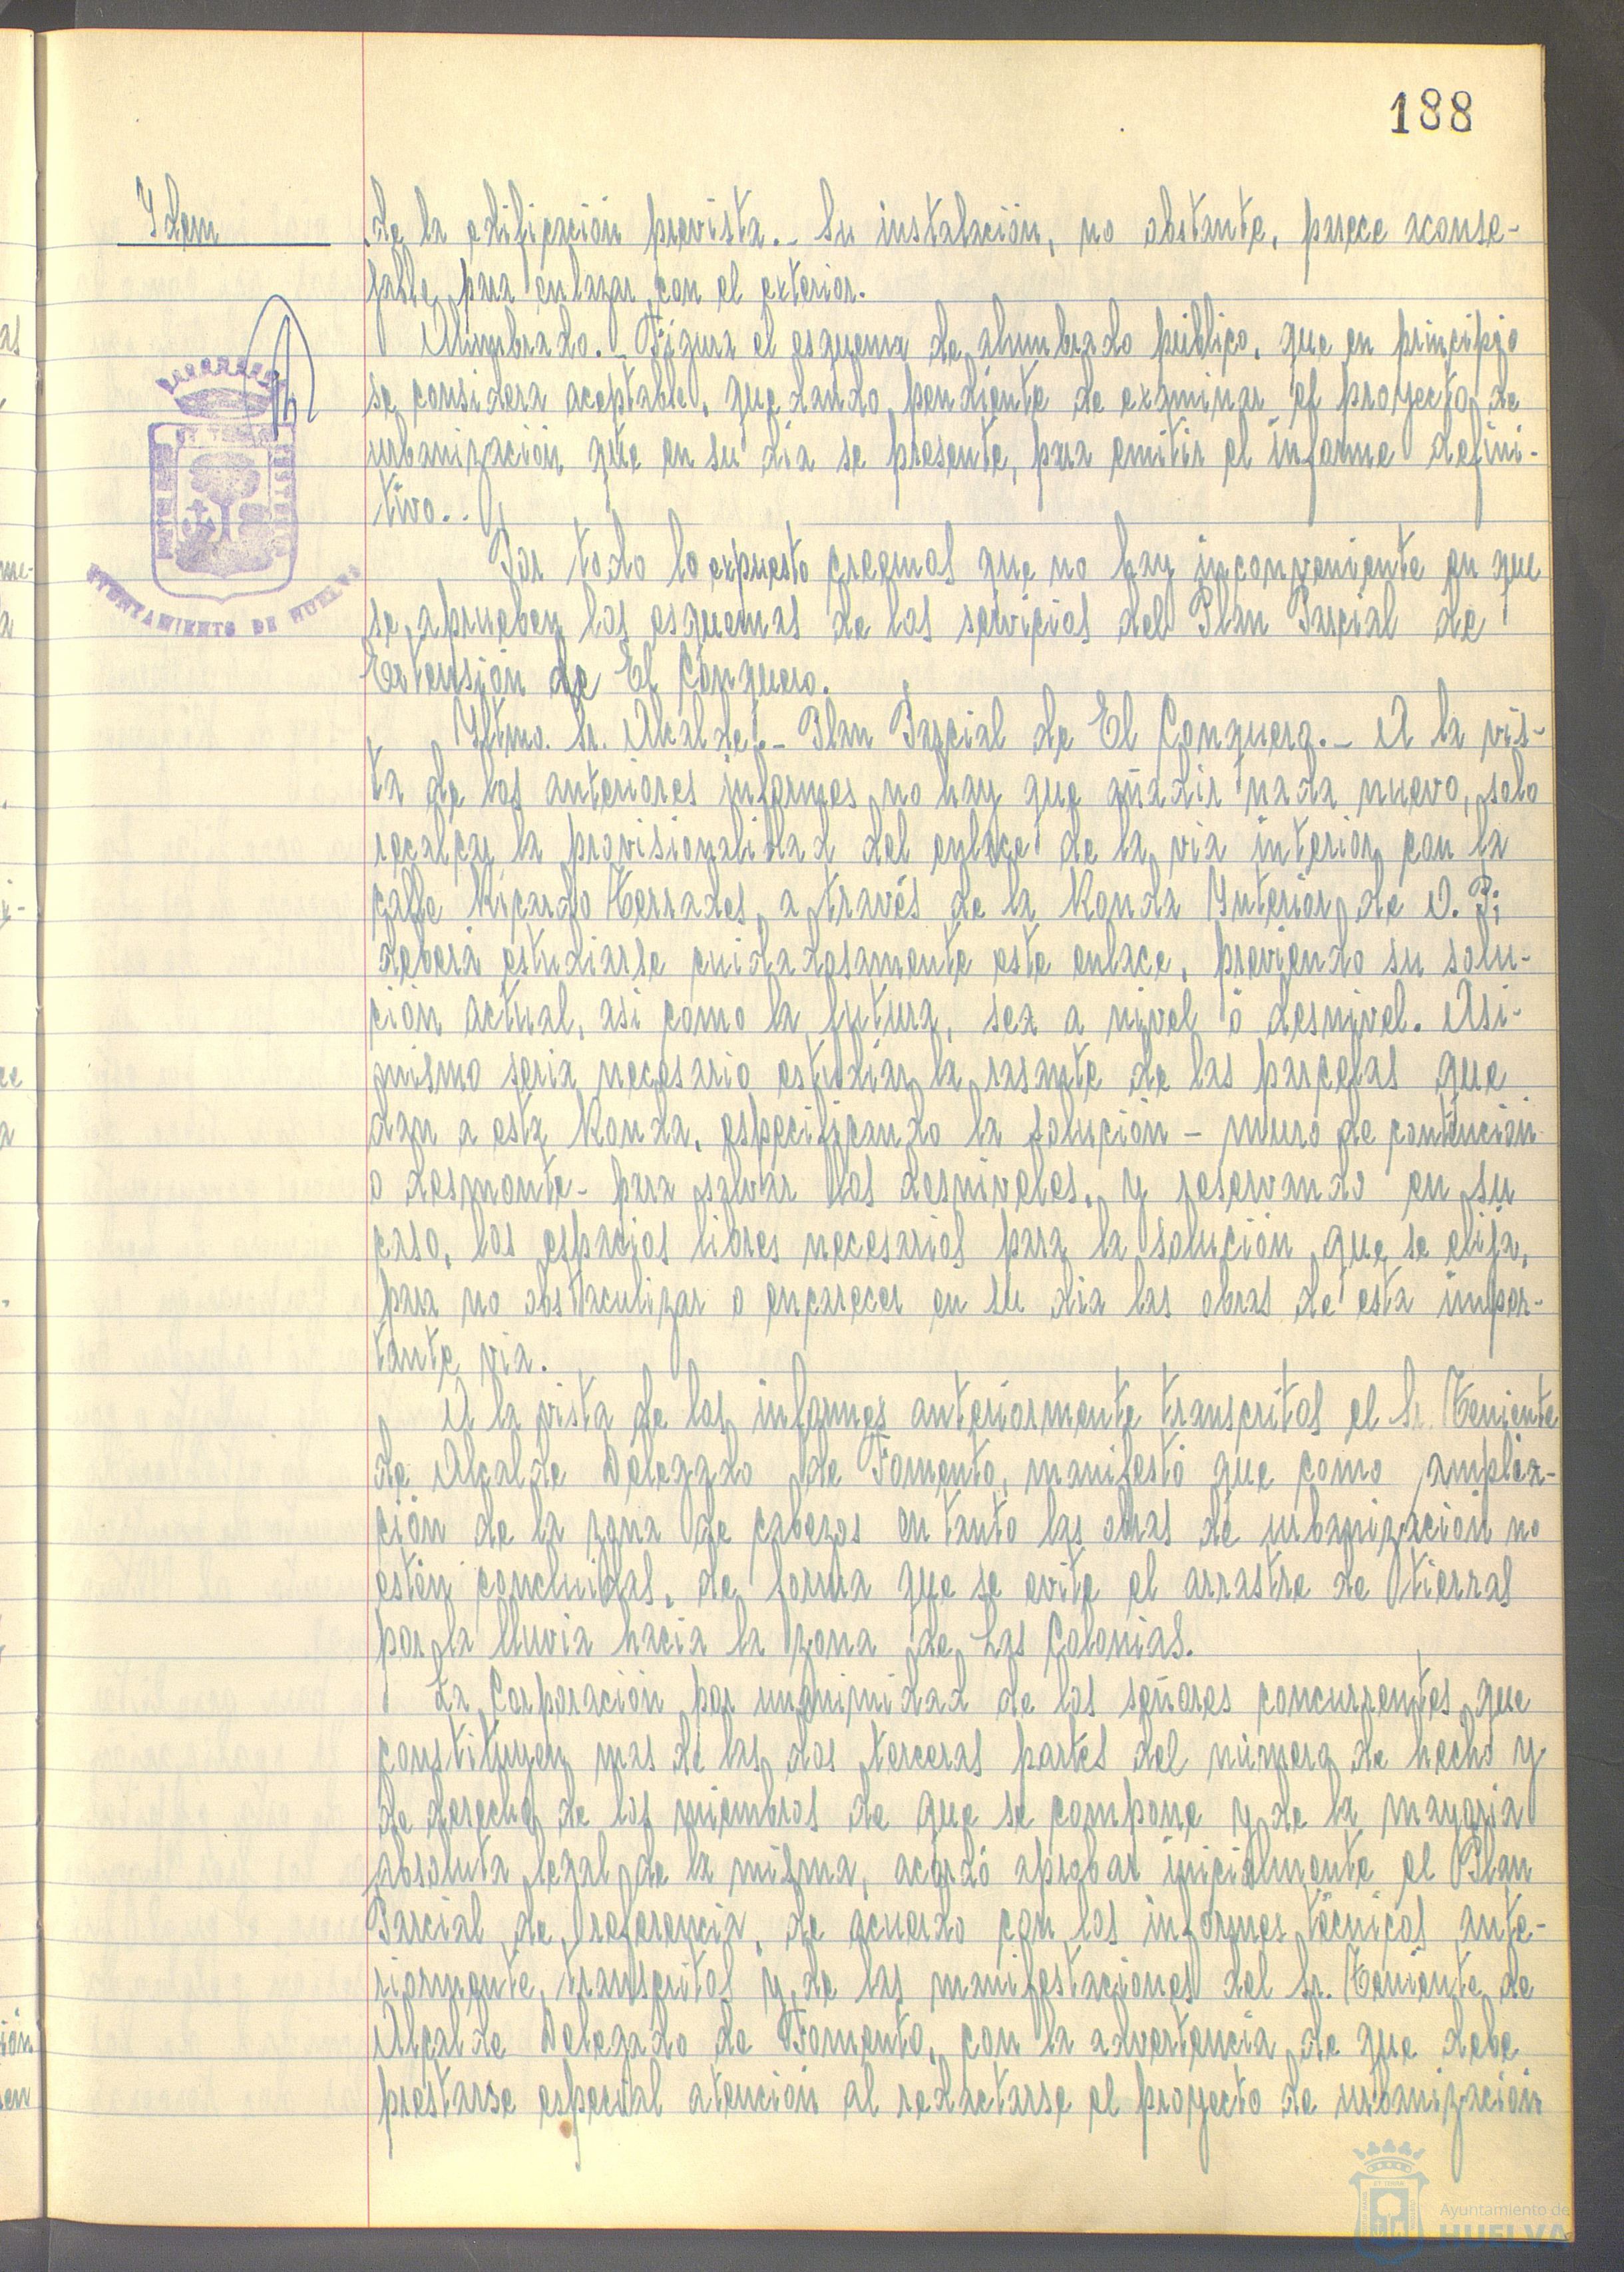 188
Idem
de la edificación prevista.- Su instalación, no obstante, parece aconse-
jable para enlazar con el exterior.
Alumbrado.- Figura el esquema de alumbrado público, que en principio
se considera aceptable, quedando pendiente de examinar el proyecto de
urbanización que en su dia se presente, para emitir el informe defini-
tivo..
Por todo lo expuesto creemos que no hay inconveniente en que
se aprueben los esquemas de los servicios del Plan Parcial de
Extensión de El Conquero.
Iltmo. Sr. Alcalde.- Plan Parcial de El Conquero.- A la vis-
ta de los anteriores informes no hay que añadir nada nuevo, solo
recalcar la provisionalidad del enlace de la via interior con la
calle Ricardo Terrades, a través de la Ronda Interior de O. P;
deberá estudiarse cuidadosamente este enlace, previendo su solu-
ción actual, asi como la futura, sea a nivel ó desnivel. Asi-
mismo seria necesario estudiar la rasante de las parcelas que
dan a esta Ronda, especificando la solución - muro de contención
o desmonte- para salvar los desniveles, y reservando en su
caso, los espacios libres necesarios para la solución que se elija,
para no obstaculizar o encarecer en su dia las obras de esta impor-
tante via.
A la vista de los informes anteriormente transcritos el Sr. Teniente
de Alcalde Delegado de Fomento, manifestó que como amplia-
ción de la zona de cabezos en tanto las obras de urbanización no
estén concluidas, de forma que se evite el arrastre de tierras
por la lluvia hacia la zona de Las Colonias.
La Corporación por unanimidad de los señores concurrentes que
constituyen mas de las dos terceras partes del número de hecho y
de derecho de los miembros de que se compone y de la mayoria
absoluta legal de la misma, acordó aprobar inicialmente el Plan
Parcial de referencia, de acuerdo con los informes técnicos ante-
riormente transcritos y de las manifestaciones del Sr. Teniente de
Alcalde Delegado de Fomento, con la advertencia de que debe
prestarse especial atención al redactarse el proyecto de urbanización
AYUNTAMIENTO DE HUELVA
Ayuntamiento de
HUELVA